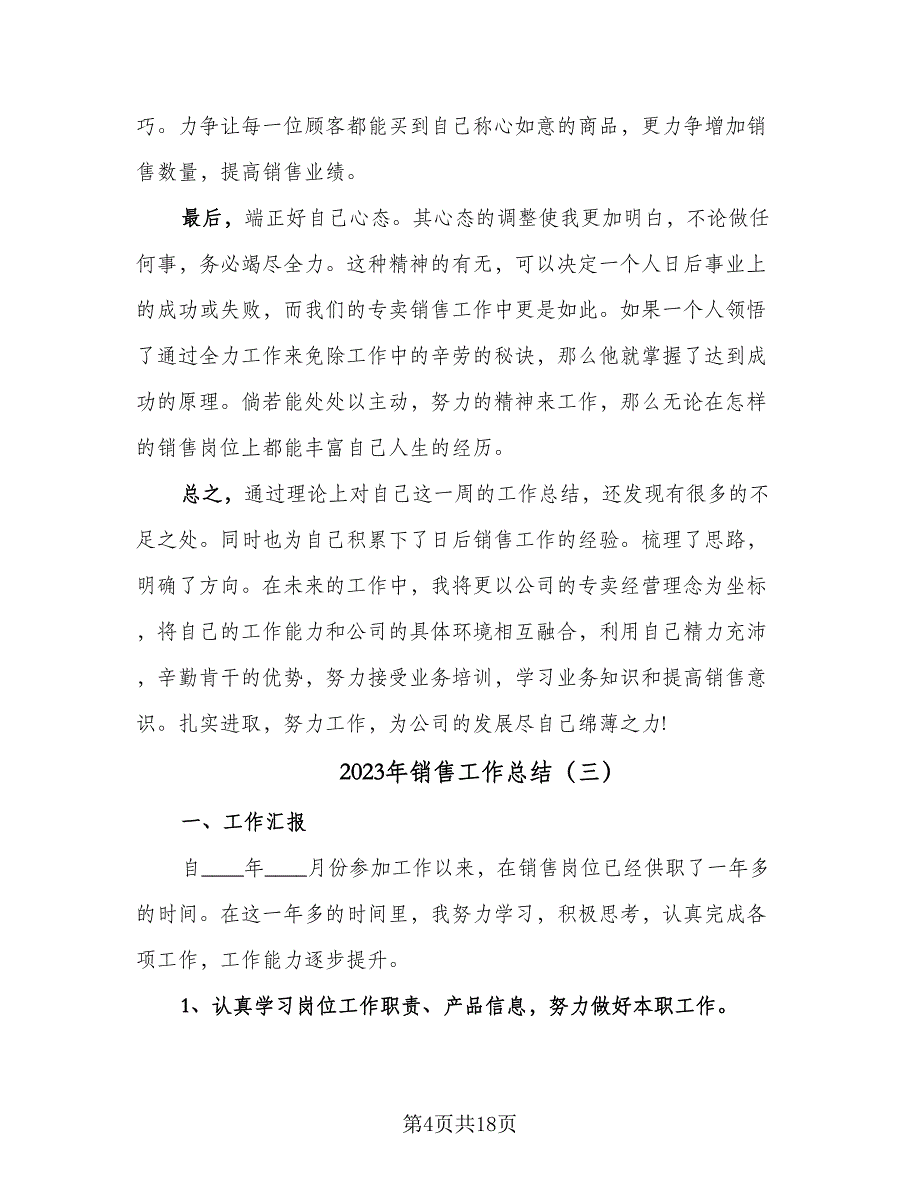 巧。力争让每一位顾客都能买到自己称心如意的商品，更力争增加销
售数量，提高销售业绩。
最后，端正好自己心态。其心态的调整使我更加明白，不论做任
何事，务必竭尽全力。这种精神的有无，可以决定一个人日后事业上
的成功或失败，而我们的专卖销售工作中更是如此。如果一个人领悟
了通过全力工作来免除工作中的辛劳的秘诀，那么他就掌握了达到成
功的原理。倘若能处处以主动，努力的精神来工作，那么无论在怎样
的销售岗位上都能丰富自己人生的经历。
总之，通过理论上对自己这一周的工作总结，还发现有很多的不
足之处。同时也为自己积累下了日后销售工作的经验。梳理了思路，
明确了方向。在未来的工作中，我将更以公司的专卖经营理念为坐标
，将自己的工作能力和公司的具体环境相互融合，利用自己精力充沛
，辛勤肯干的优势，努力接受业务培训，学习业务知识和提高销售意
识。扎实进取，努力工作，为公司的发展尽自己绵薄之力!
2023年销售工作总结（三）
一、工作汇报
自____年____月份参加工作以来，在销售岗位已经供职了一年多
的时间。在这一年多的时间里，我努力学习，积极思考，认真完成各
项工作，工作能力逐步提升。
1、认真学习岗位工作职责、产品信息，努力做好本职工作。
第4页共18页